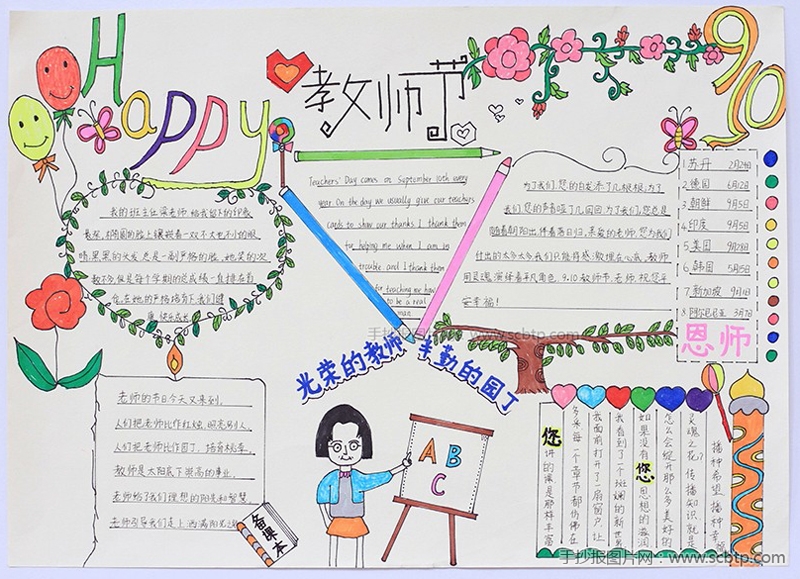 Happy
教师节
910
我的班主任梁老师,给我留下的印象
是,椭圆的脸上镶嵌着一双不大也不小的眼
睛,黑黑的头发总是一副严格的脸,她累的次
数不少,但是每个学期的总成绩一直排在前
在她的严格培育下,我们健
康,快乐成长。
Teachers' Day comes on September 10th every
year. On the day we usually give our teachers
cards to show our thanks. I thank them
for helping me when I am in
trouble. and I thank them
for teaching me how
to be a real
man.
为了我们,您的白发添了几根根,为了
我们,您的声音哑了几回回,为了我们,您总是
随着朝阳出,伴着落日归,亲爱的老师,您为我们
付出的太多太多,我们只能用感激埋在心底,教师
用灵魂演绎着平凡角色,9.10教师节,老师,祝您平
安幸福!
1 苏丹 2月24日
2 德国 6月12日
3 朝鲜 9月5日
4 印度 9月5日
5 美国 9月28日
6 韩国 5月15日
7 新加坡 9月1日
8 阿尔巴尼亚 3月7日
恩师
手抄报图片网:www.scbtp.com
光荣的教师 辛勤的园丁
老师的节日今天又来到,
人们把老师比作红烛,照亮别人,
人们把老师比作园丁,培育桃李,
教师是太阳底下崇高的事业,
老师给了我们理想的阳光和智慧
老师引导我们走上洒满阳光之路
备课本
A B
C
您讲的课是那样丰富
多采,每一个章节都仿佛在
我面前打开了一扇窗户,让
我看到了一个斑斓的新世
如果没有您思想的滋润
怎么会绽开那么多美好的
灵魂之花?传播知识,就是
播种希望,播种幸福
手抄报图片网:www.scbtp.com